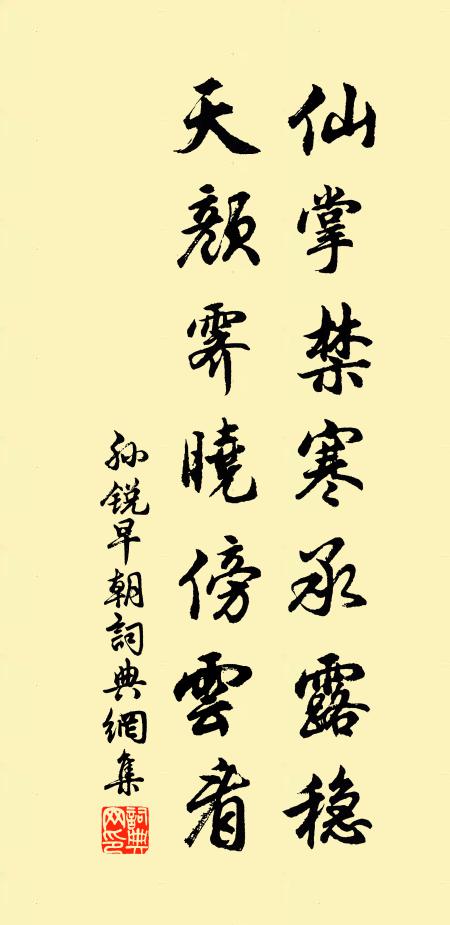 仙掌禁寒承露稳
天颜霁晓傍雲看
孙锐早朝詞典網集
詞典网印